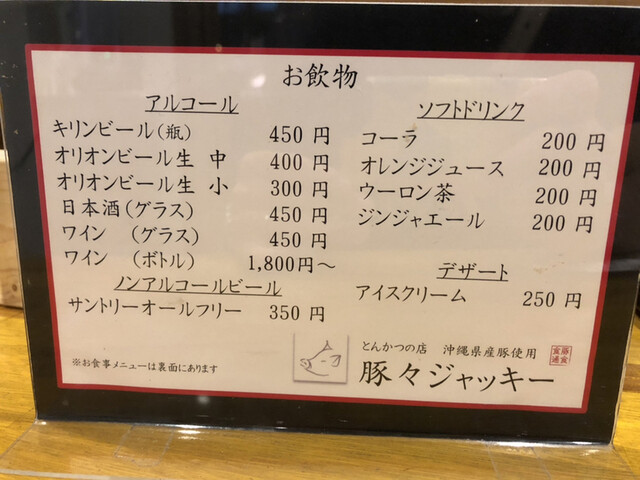 お飲物
アルコール
キリンビール(瓶) 450 円
オリオンビール生 中 400 円
オリオンビール生 小 300 円
日本酒(グラス) 450 円
ワイン (グラス) 450 円
ワイン (ボトル) 1,800円～
ノンアルコールビール
サントリーオールフリー 350 円
※お食事メニューは裏面にあります
ソフトドリンク
コーラ 200 円
オレンジジュース 200 円
ウーロン茶 200 円
ジンジャエール 200 円
デザート
アイスクリーム 250 円
とんかつの店 沖縄県産豚使用
豚々ジャッキー